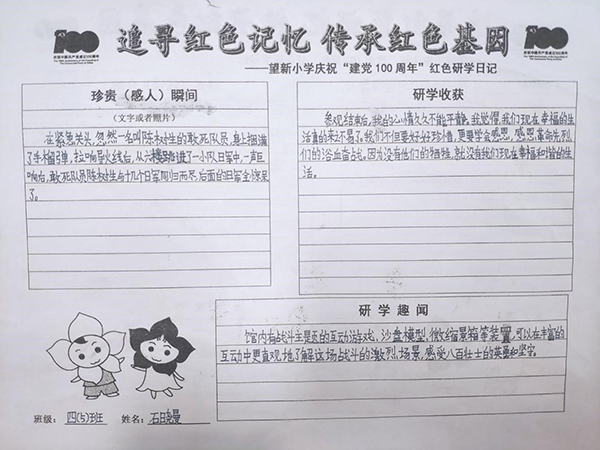 追寻红色记忆 传承红色基因
——望新小学庆祝“建党100周年”红色研学日记
珍贵（感人）瞬间
（文字或者照片）
在紧急关头，忽然一名叫陈树生的敢死队员，身上捆满
了手榴弹，拉响导火线后，从六楼跳进了一小队日军中，一声巨
响后，敢死队员陈树生与十几个日军同归而尽，后面的日军全慌呆
了。
研学收获
参观结束后，我的心情久久不能平静，我觉得，我们现在幸福的生
活真的来之不易了。我们不但要好好珍惜，更要学会感恩，感恩革命先烈
们的浴血奋战，因为没有他们的牺牲，就没有我们现在幸福和谐的生
活。
研学趣闻
馆内有战斗主题的互动游戏，沙盘模型，微缩景箱等装置，可以在丰富的
互动中更直观地了解这场战斗的激烈场景，感受八百壮士的英勇和坚守。
班级：四（5）班 姓名：石曼